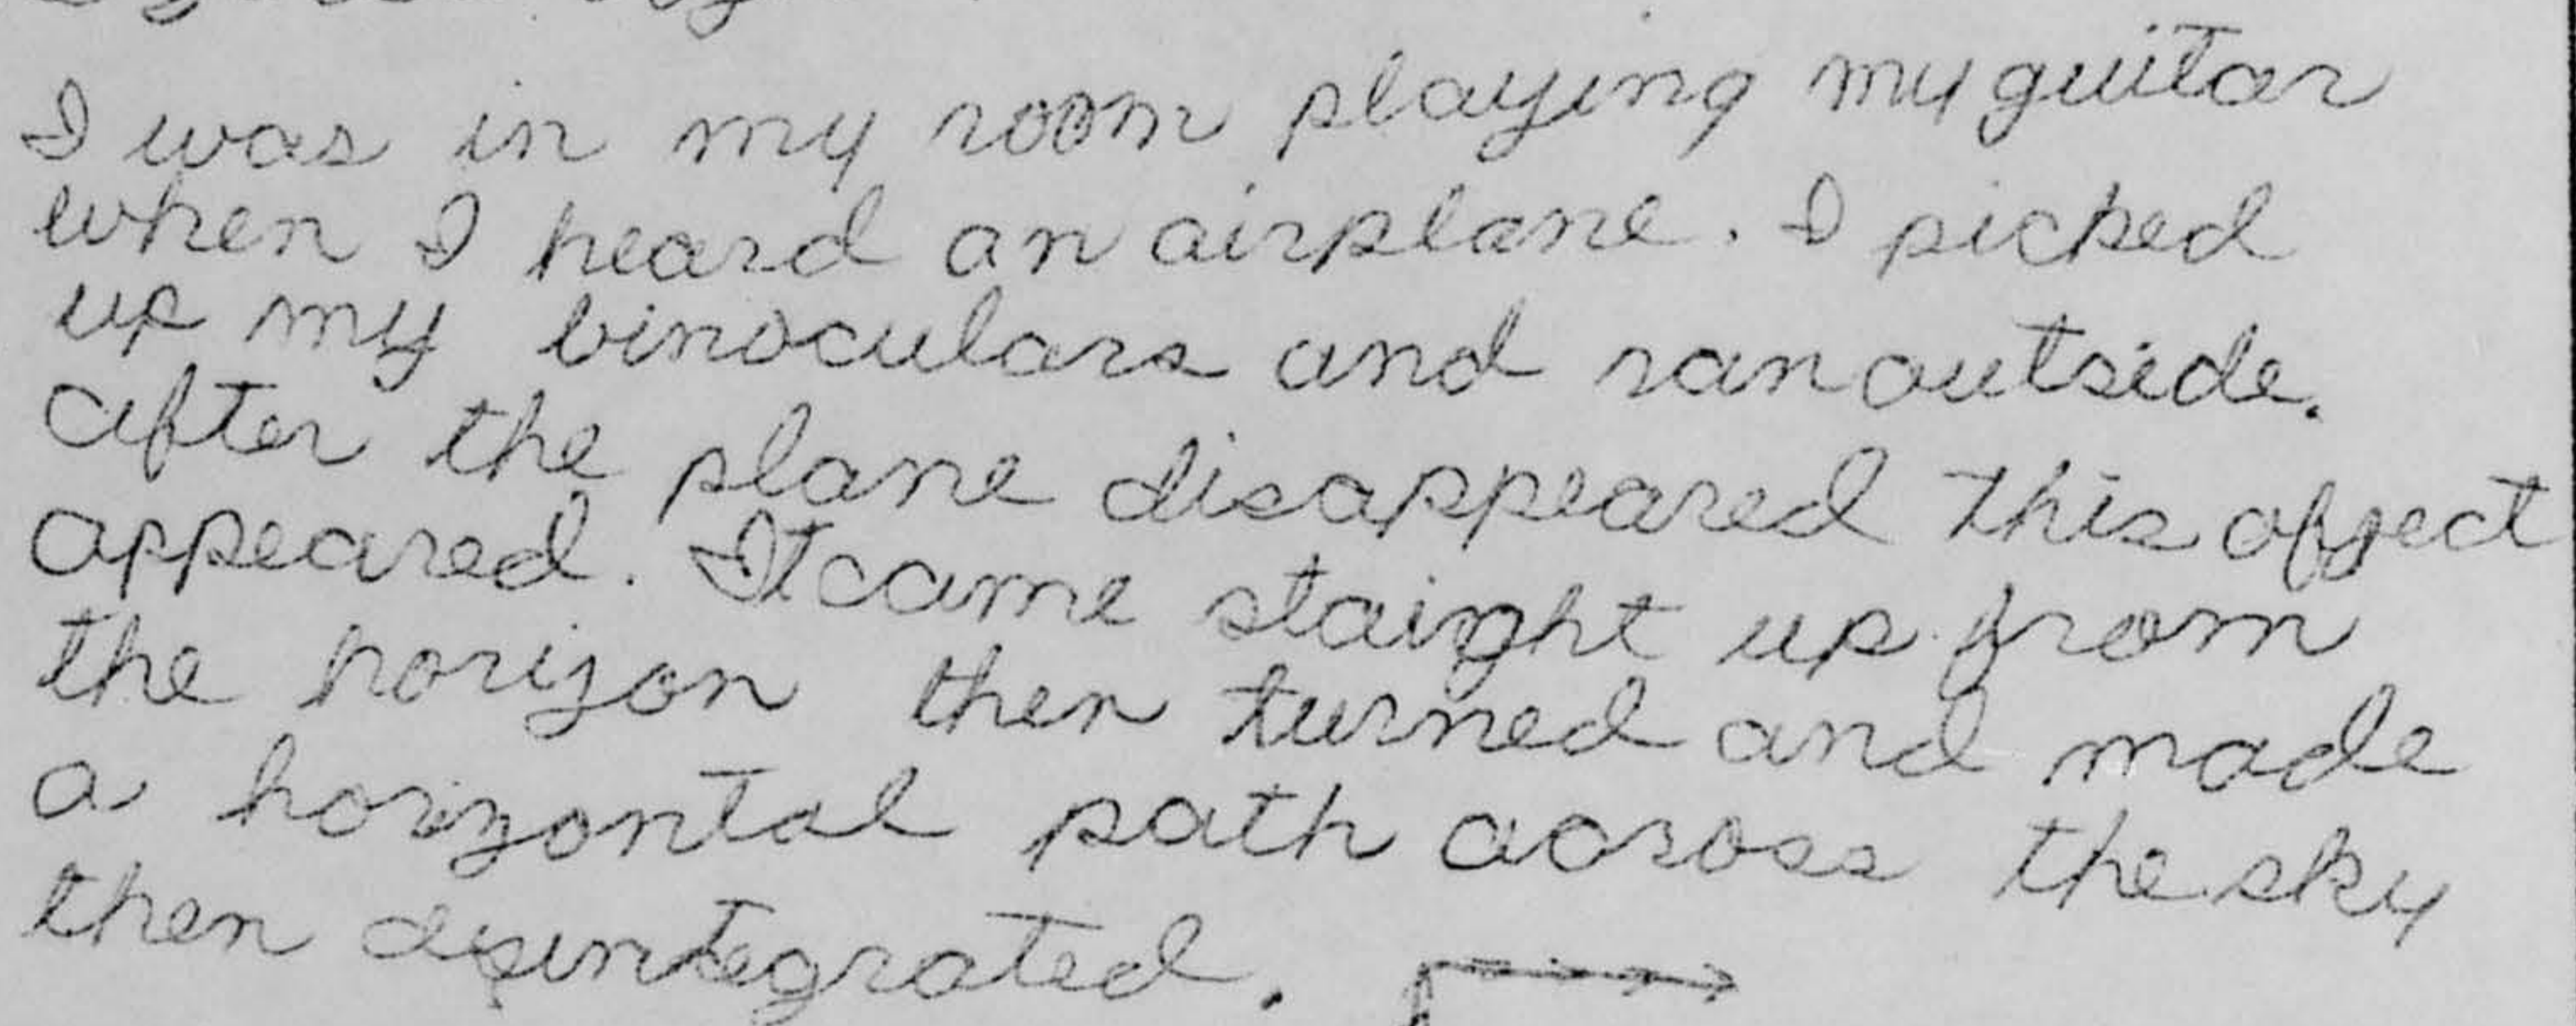 I was in my room playing my guitar
when I heard an airplane. I picked
up my binoculars and ran outside.
after the plane disappeared this object
appeared. It came staight up from
the horizon then turned and made
a horizontal path across the sky
then disintegrated.